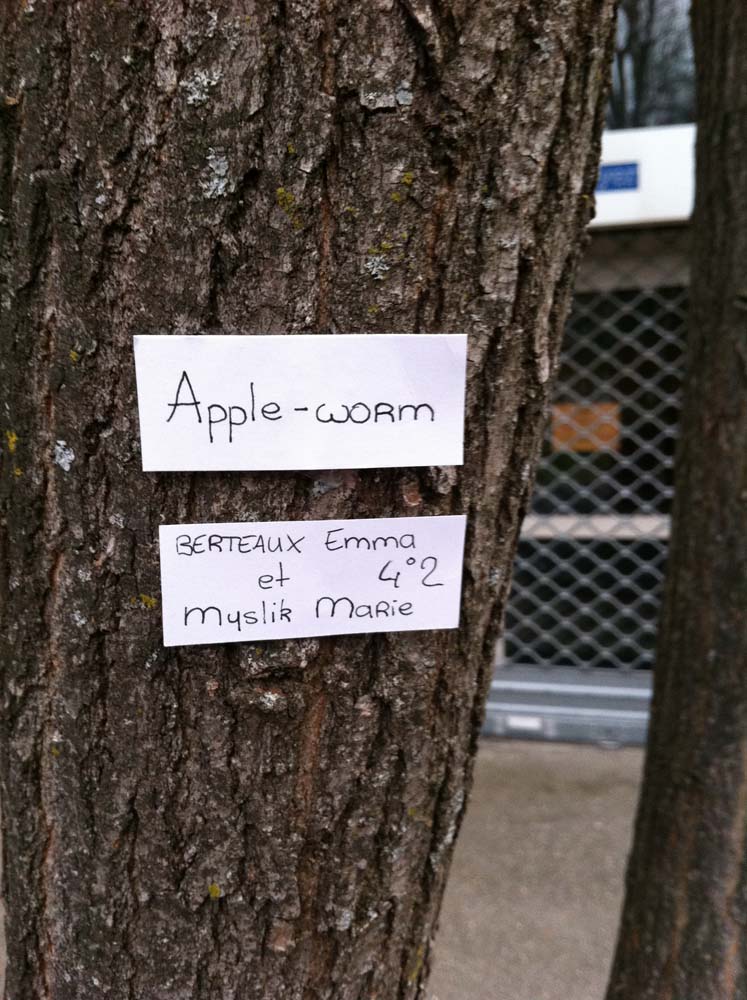 Apple-worm
BERTEAUX Emma
et 4°2
Myslik Marie